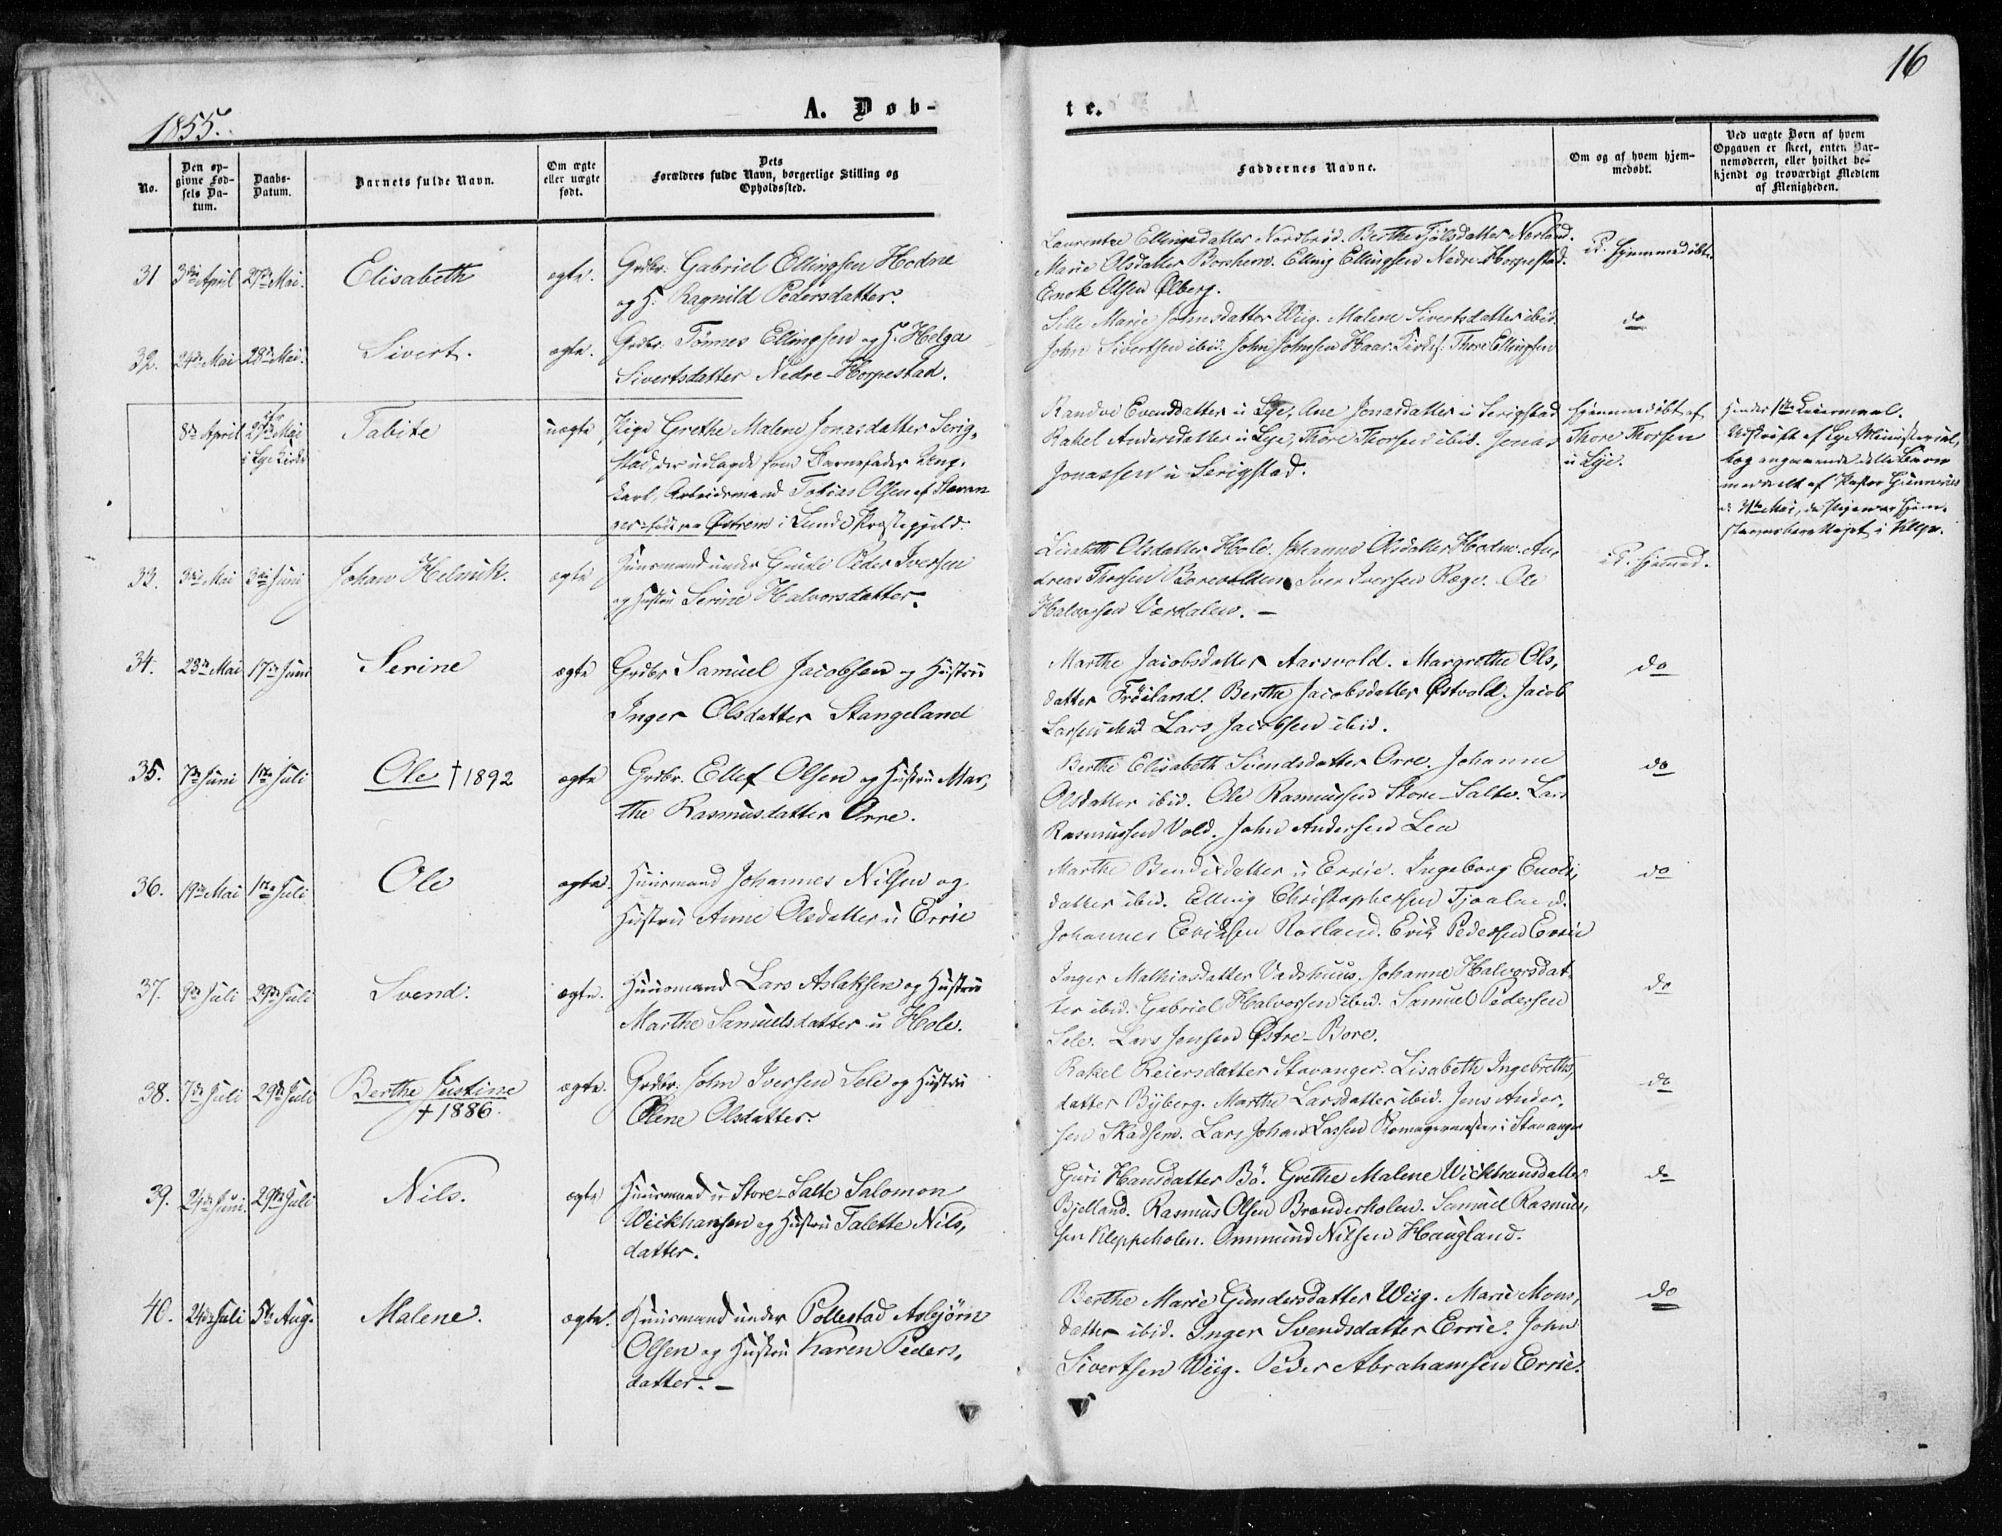 16
1855.
A. Døb-
te.
No.
Den op-
givne Fød-
sels Da-
tum.
Daabs-
Datum.
Barnets fulde Navn.
Om ægte
eller uægte
født.
Dets
Forældres fulde Navn, borgerlige Stilling og
Opholdssted.
Faddernes Navne.
Om og af hvem hjem-
medøbt.
Ved uægte Børn af hvem
Opgaven er skeet, enten Bar-
nemoderen, eller hvilket be-
kjendt og troværdigt Medlem
af Menigheden.
31 3die April 27de Mai. Elisabeth ægte. Grdbr. Gabriel Ellingsen Hodne
og H. Ragnild Pedersdatter.
Laurentze Ellingsdatter Nordbrød. Berthe Fjølsdatter Nærland.
Marie Olsdatter Borshem. Elling Ellingsen Nedre-Horpestad.
Enok Olsen Ølberg.
i. P. Hjemmedøbt
32. 24de Mai 28de Mai. Sivert. ægte. Grdbr. Tønnes Ellingsen og H. Helga
Sivertsdatter Nedre-Horpestad.
Sille Marie Johnsdatter Wiig. Malene Sivertsdatter ibid.
John Sivertsen ibid. John Johnsen Haar. Thore Ellingsen
do
8de April 27de Mai
i Lye Kirke
Tabite uægte Pige Grethe Malene Jonasdatter Serig-
stad, der udlagde som Barnefader Ung-
karl, Arbeidsmand Tobias Olsen af Stavan
ger født paa Østrem i Lunde Præstegjeld.
Randvi Evendsdatter u Lye, Ane Jonasdatter u Serigstad
Rakel Andersdatter u Lye, Thore Thorsen ibid. Jonas
Jonassen u Serigstad.
Hjemmedøbt af
Thore Thorsen
u Lye.
Hendes 1ste Leiermaal.
Udskrift af Lye Ministerial-
bog angaaende dette Barn
meddelt af Pastor
33. 3die Mai 3die Juni Johan Helmik. ægte Huusmand under Grude Peder Iversen
og Hustru Serine Halvorsdatter.
Lisabeth Olsdatter Hole. Johanne Olsdatter Hodne. An-
dreas Thorsen Iver Iversen Rege. Ole
Halvorsen Værdalen. —
i P. Hjemmed.
34. 23de Mai 17de Juni Serine ægte Grdbr Samuel Jacobsen og Hustru
Inger Olsdatter Stangeland
Marthe Jacobsdatter Aarsvold. Margrethe Ols-
datter Frøiland. Berthe Jacobsdatter Østvold. Jacob
Larsen ibid Lars Jacobsen ibid.
do
35. 7de Juni 1ste Juli Ole † 1892 ægte Grdbr. Ellef Olsen og Hustru Mar-
the Rasmusdatter Orre.
Berthe Elisabeth Svendsdatter Orre. Johanne
Olsdatter ibid. Ole Rasmussen Store-Salte. Lars
Rasmussen Vold. John Andersen Lea
do
36. 19de Mai 1ste Juli Ole ægte. Huusmand Johannes Nilsen og
Hustru Anne Olsdatter u Errie
Marthe Bendixdatter u Errie. Ingeborg Enoks-
datter ibid. Elling Christophersen Tjaaland.
Johannes Eriksen Rosland. Erik Pedersen Errie
do
37. 9de Juli 29de Juli Svend. ægte. Huusmand Lars Aslaksen og Hustru
Marthe Samuelsdatter u Hole.
Inger Mathiasdatter Vadshuus. Johanne Halvorsdat-
ter ibid. Gabriel Halvorsen ibid. Samuel Pedersen
Sele. Lars Jensen Østre-Bore.
do
38. 7de Juli 29de Juli Berthe Justine
† 1886.
ægte. Grdbr. John Iversen Sele og Hustru
Olene Olsdatter.
Rakel Reiersdatter Stavanger. Lisabeth Ingebreths-
datter Byberg. Marthe Larsdatter ibid. Jens Ander-
sen Skadsem. Lars Johan Larsen Skomagermester i Stavanger
do
39. 24de Juni. 29de Juli Nils. ægte Huusmand u Store-Salte Salomon
Wickhansen og Hustru Talette Nils-
datter.
Guri Hansdatter Bø. Grethe Malene Wickhansdatter
Bjelland. Rasmus Olsen Brønderholen. Samuel Rasmus-
sen Kleppeholen. Ommund Nilsen Haugland.
do
40. 24de Juli 5te Aug. Malene. ægte. Huusmand under Pollestad Asbjørn
Olsen og Hustru Karen Peders-
datter. —
Berthe Marie Gundersdatter Wiig. Marie Mons-
datter ibid. Inger Svendsdatter Errie. John
Sivertsen Wiig. Peder Abrahamsen Errie.
do